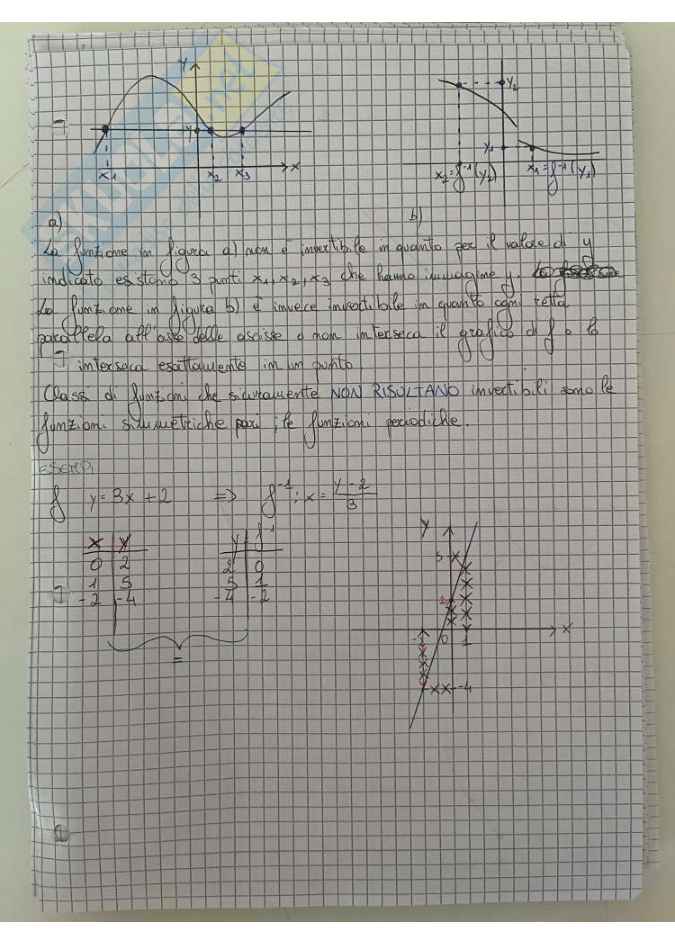 y
y
x₁ x₂ x₃ x
y₂
y₁
x₂=f⁻¹(y₂) x₁=f⁻¹(y₁)
a) b)
La funzione in figura a) non è invertibile in quanto per il valore di y
indicato esistono 3 punti x₁, x₂, x₃ che hanno immagine y.
La funzione in figura b) è invece invertibile in quanto ogni retta
parallela all'asse delle ascisse o non interseca il grafico di f o lo
interseca esattamente in un punto
Classi di funzioni che sicuramente NON RISULTANO invertibili sono le
funzioni simmetriche pari; le funzioni periodiche.
ESEMPI
f y=3x+2 => f⁻¹: x = (y-2)/3
x y y f⁻¹
0 2 2 0
1 5 5 1
-2 -4 -4 -2
=
y
5
2
0 1 x
-4